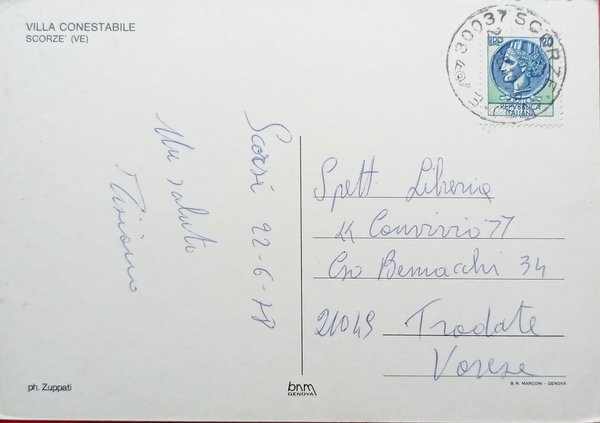 VILLA CONESTABILE
SCORZE' (VE)
30037 SCORZE'
REPVBBLICA
ITALIANA
Scorzè 22-6-78
Un saluto
Spett Libreria
Il Convivio 77
Cso Bernacchi 34
21049 Tradate
Varese
ph. Zuppati
bnm
GENOVA
B. N. MARCONI - GENOVA